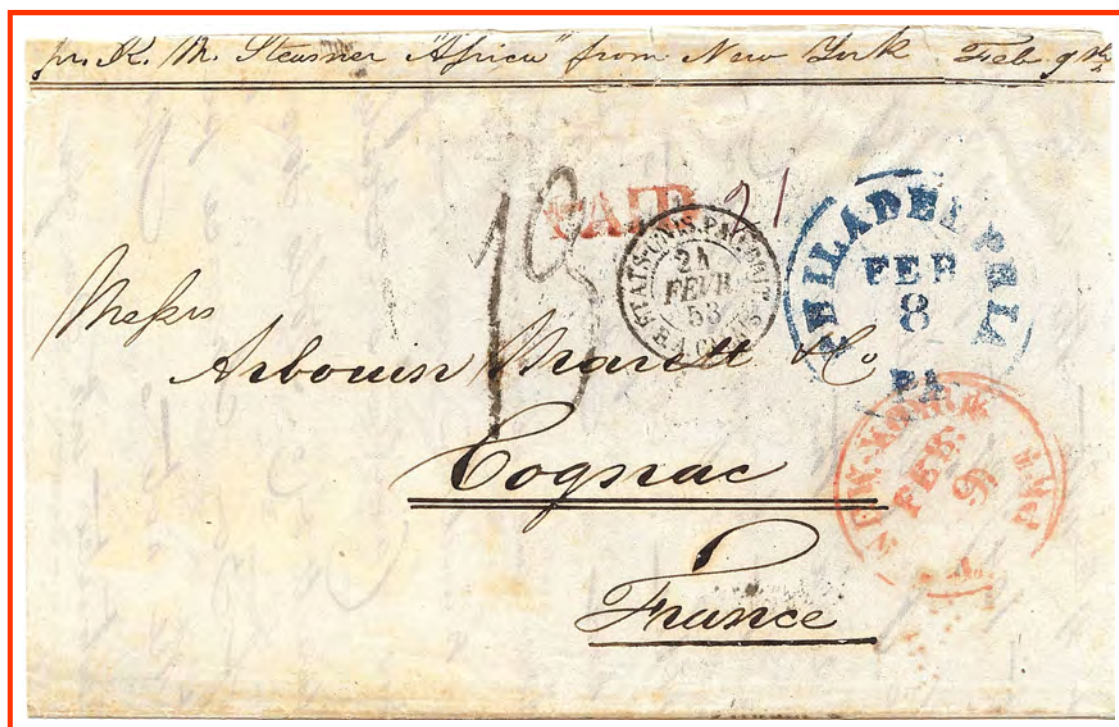 pr. R. M. Steamer "Africa" from New York Feb. 9th
PAID 21
13
ETATS-UNIS. PAQ. BRIT. 
24
FEVR
53
A CALAIS
PHILADELPHIA
FEB
8
PA
Messrs
Arbouin Marett & Co
NEW-YORK
FEB.
9
Cognac
France